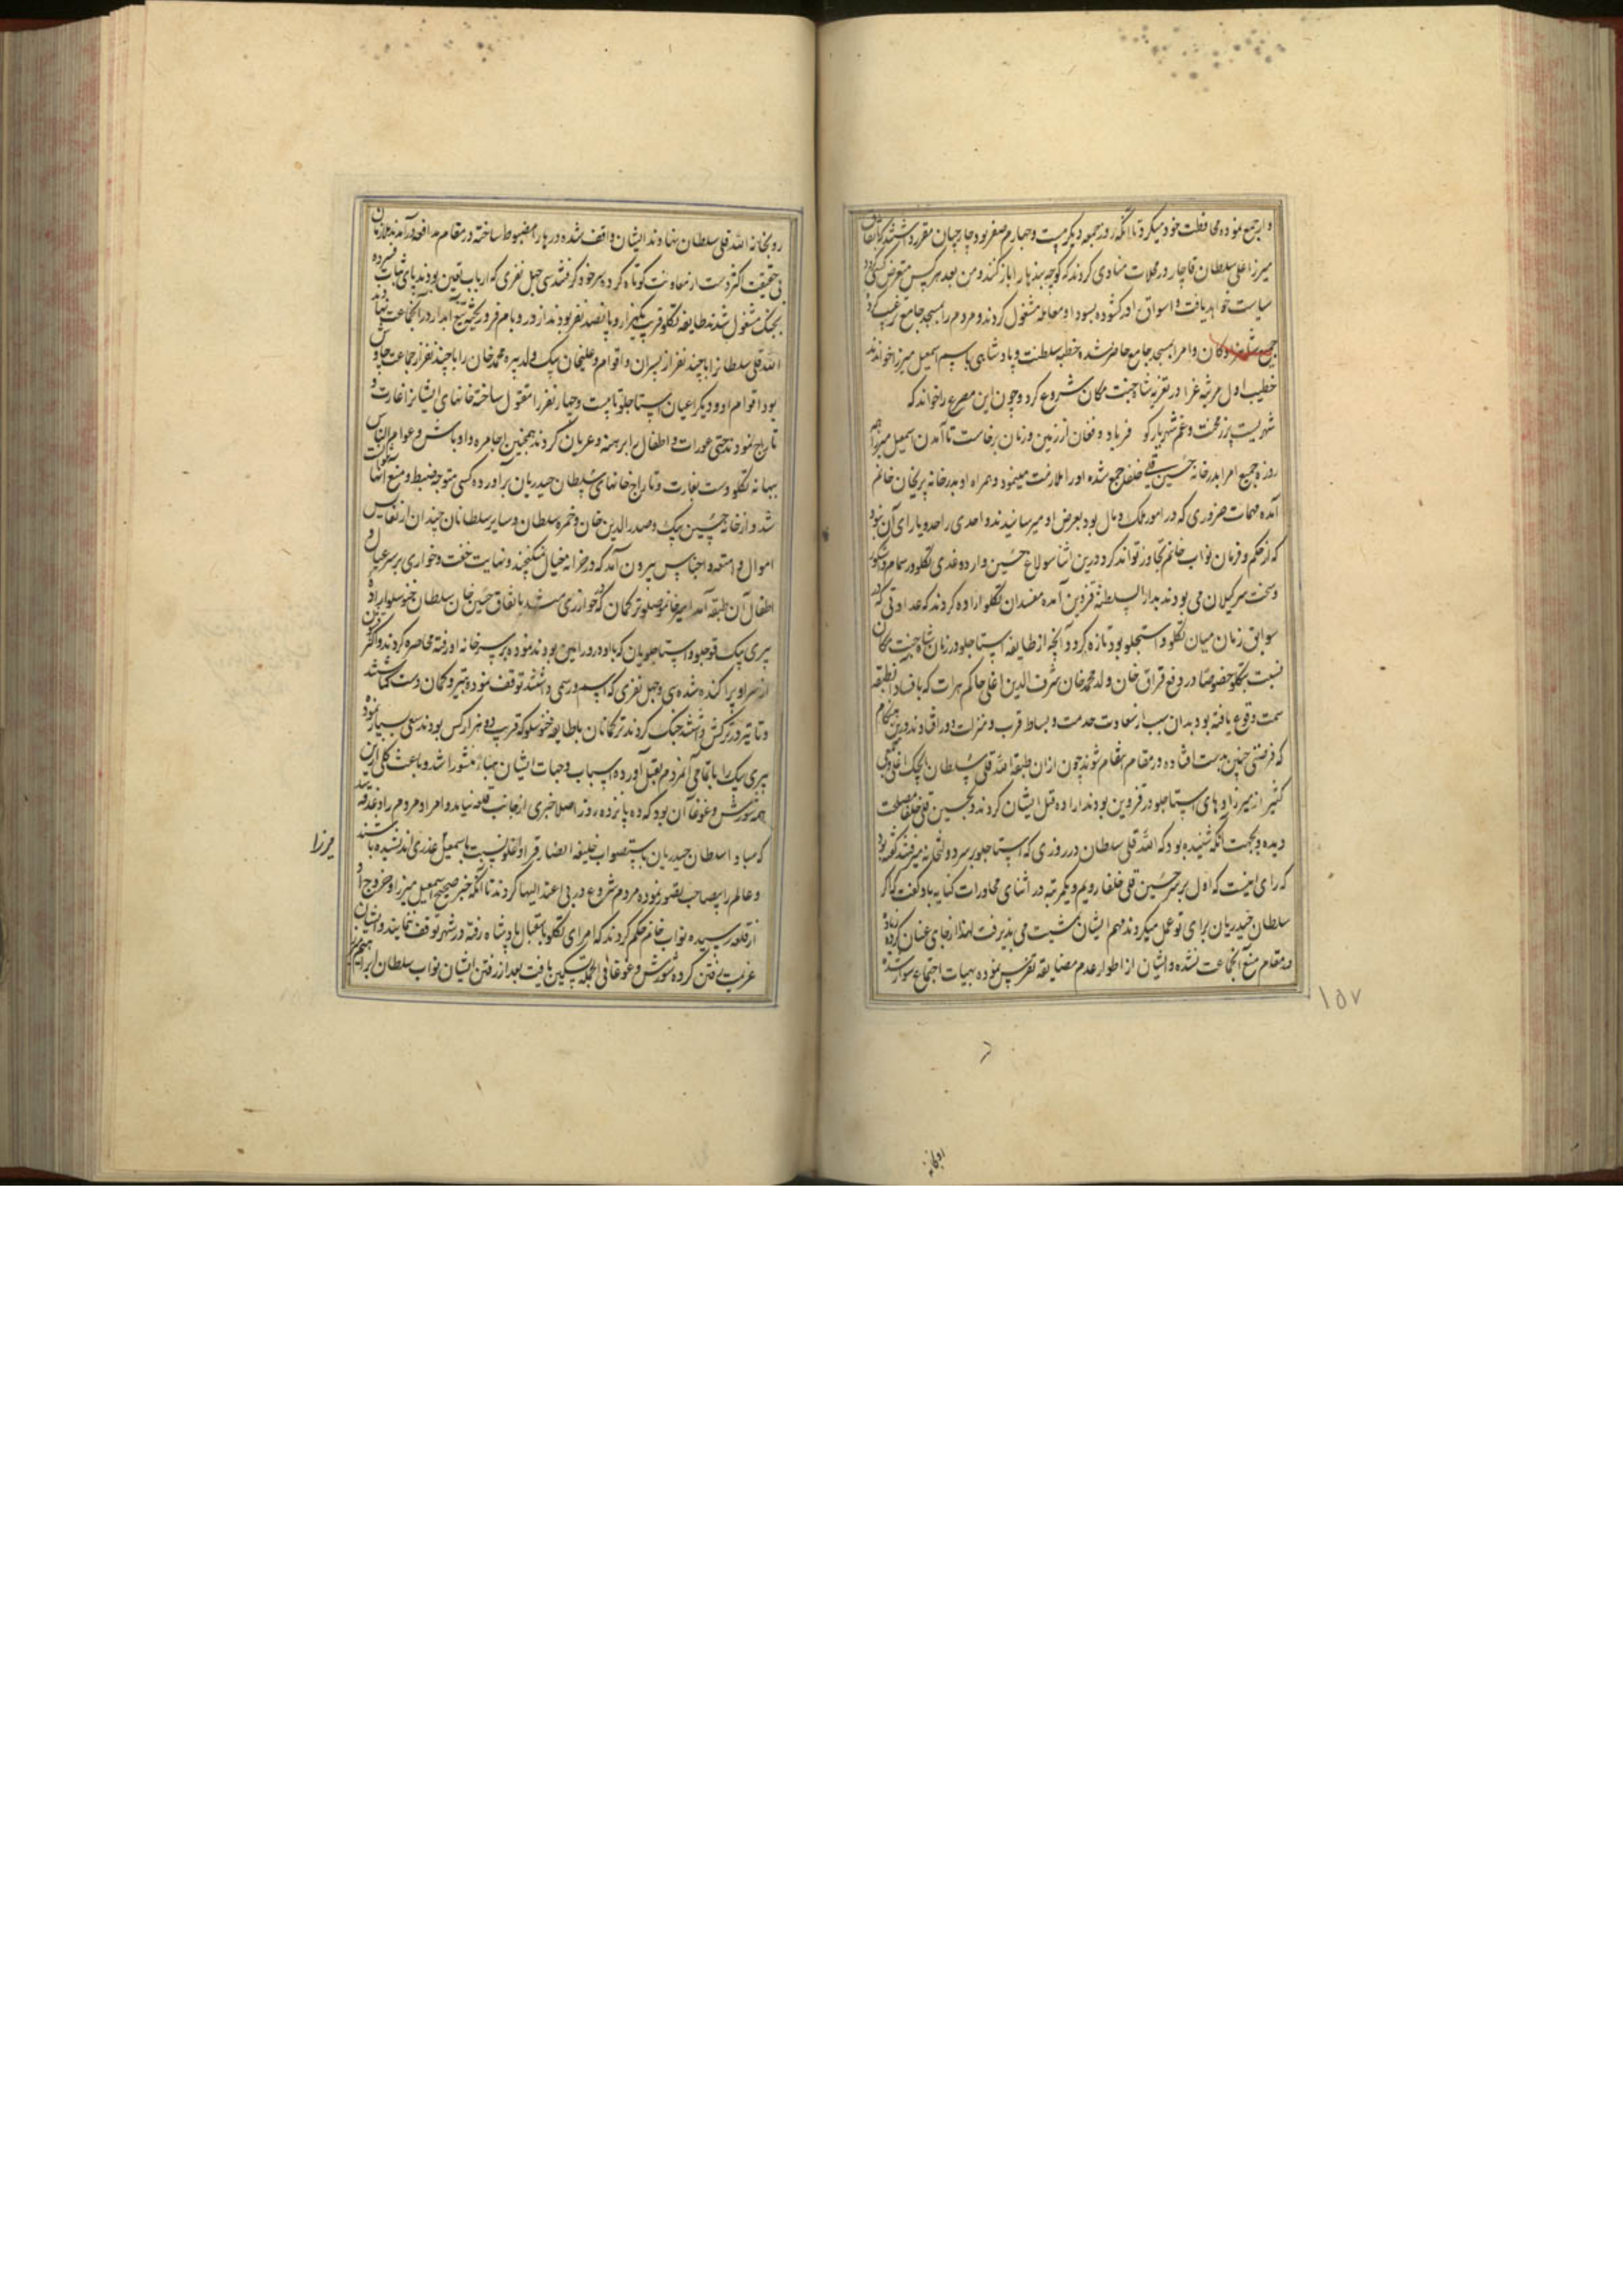 و ایر جمع نموده محافظت خود میکرد تا آنکه روز جمعه دیگر بیست و چهارم صفر بود جارچیان مقرر داشتند که باتفاق
میرزا علی سلطان قاجار در محلات منادی کردند که کوچه بندها را باز کنند و من بعد هر کس متعرض کسی گردد
سیاست خواهد یافت و اسواق را گشوده بسودا و معامله مشغول کردند و مردم را بمسجد جامع ترغیب کرده
جمیع شاهزادگان و امرا بمسجد جامع حاضر شده خطبه سلطنت و پادشاهی باسم اسمعیل میرزا خواندند
خطیب اول مرثیه غرا در تعزیه شاه جنت مکان شروع کرد و چون این مصرع را خواند که
شهریست پرز محنت و غم شهریار کو فریاد و فغان از زمین و زمان برخاست تا آمدن اسمعیل میرزا هر
روزه جمیع امرا بدرخانه حسین قلی خلفا جمع شده او را ملازمت مینمود و همراه او بدرخانه پریخان خانم
آمده مهمات ضروری که در امور ملک و مال بود بعرض او میرسانیدند و احدی را حد و یارای آن نبود
که از حکم و فرمان نواب خانم تجاوز تواند کرد درین اثنا سولاغ حسین و ارده غدی تکلو در سمام و اشکور
و تخت سر گیلان می بودند بدار السلطنه قزوین آمده مفسدان تکلو اراده کردند که عداوتی که در
سوابق زمان میان تکلو و استجلو بود تازه کرد و آنچه از طایفه استاجلو در زمان شاه جنت مکان
نسبت بتکلو خصوصا در دفع قزاق خان ولد محمد خان شرف الدین اغلی حاکم هرات که بافساد آن طبقه
سمت وقوع یافته بود بدان سبب از سعادت خدمت و بساط قرب و منزلت دور افتادند درین هنگام
که فرصتی چنین بدست افتاده در مقام انتقام شوند چون ازان طبقه الله قلی سلطان ایجک اغلی و جمعی
کثیر از میرزادهای استاجلو در قزوین بودند اراده قتل ایشان کردند و بحسین قلی خلفا مصلحت
دیده و بجهت آنکه شنیده بود که الله قلی سلطان در روزی که استاجلو بر سر دولتخانه میرفتند گفته بود
که رای اینست که اول بر سر حسین قلی خلفا رویم و یکمرتبه در اثنای محاورات کنایه باو گفت که اگر
سلطان حیدریان برای تو عمل میکردند مهم ایشان تمشیت می پذیرفت لهذا ارخای عنان کرده زیاده
در مقام منع آنجماعت نشده و ایشان از اطوار عدم مضایقه تفرس نموده بهیات اجتماع سوار شده
۱۵۷
رو بخانه الله قلی سلطان نهادند ایشان واقف شده درها را مضبوط ساخته در مقام مدافعه درآمدند ملازمان
بی حقیقت اکثر دست از معاونت کوتاه کرده سر خود گرفتند سی چهل نفری که ارباب یقین بودند پای ثبات فشرده
بجنگ مشغول شدند طایفه تکلو قریب یکهزار و پانصد نفر بودند از در و بام فرو ریخته تیغ آبدار در آنجماعت نهادند
الله قلی سلطان را با چند نفر از پسران و اقوام و علیخان بیک ولد پیره محمد خان را با چند نفر از جماعت چاوش
بود اقوام او و دیگر اعیان استاجلو تا بیست و چهار نفر را مقتول ساخته خانهای ایشان را غارت و
تاراج نمودند حتی عورات و اطفال را برهنه و عریان کردند همچنین اجامره و اوباش و عوام الناس
ببهانه تکلو دست بغارت و تاراج خانهای سلطان حیدریان برآورده کسی متوجه ضبط و منع آنها
شد و از خانه حسین بیک و صدرالدین خان و حمزه سلطان و سایر سلطانان چندان از نفایس
اموال و امتعه و اجناس بیرون آمد که در خزانه خیال نگنجد و نهایت خفت و خواری بر سر عیال و
اطفال آن طبقه آمد امیر خان موصلو ترکمان که در خوارزی باتفاق حسین جان سلطان خنسلو اراده
پیری بیک قوجلو و استاجلویان که با او در ورامین بودند نموده بر سر خانه او رفته محاصره کردند و اکثر
از همراه پراکنده شده سی و چهل نفری که اسم و رسمی داشتند توقف نموده بتیر و کمان دست گشادند
و تا تیر در ترکش داشتند جنگ کردند ترکمانان با طایفه خنسلو که قریب دو هزار کس بودند سعی بسیار نمود
پیری بیک را با تمامی آنمردم بقتل آورده اسباب و جهات ایشان هباءً منثورا شد و باعث کلی این
همه شورش و غوغا آن بود که ده پانزده روز اصلا خبری از جانب قلعه نیامد و امرا و مردم را دغدغه
که مبادا سلطان حیدریان باستصواب خلیفه انصار قراداغلو نسبت باسمعیل غدری اندیشیده باشند
میرزا
و عالم را بیصاحب تصور نموده مردم شروع در بی اعتدالیها کردند تا آنکه خبر صحیح اسمعیل میرزا و خروج او
از قلعه رسیده نواب خانم حکم کردند که امرای تکلو باستقبال پادشاه رفته در شهر توقف ننمایند و ایشان
عزیمت رفتن کرده شورش و غوغا فی الجمله تسکین یافت بعد از رفتن ایشان نواب سلطان ابراهیم میرزا